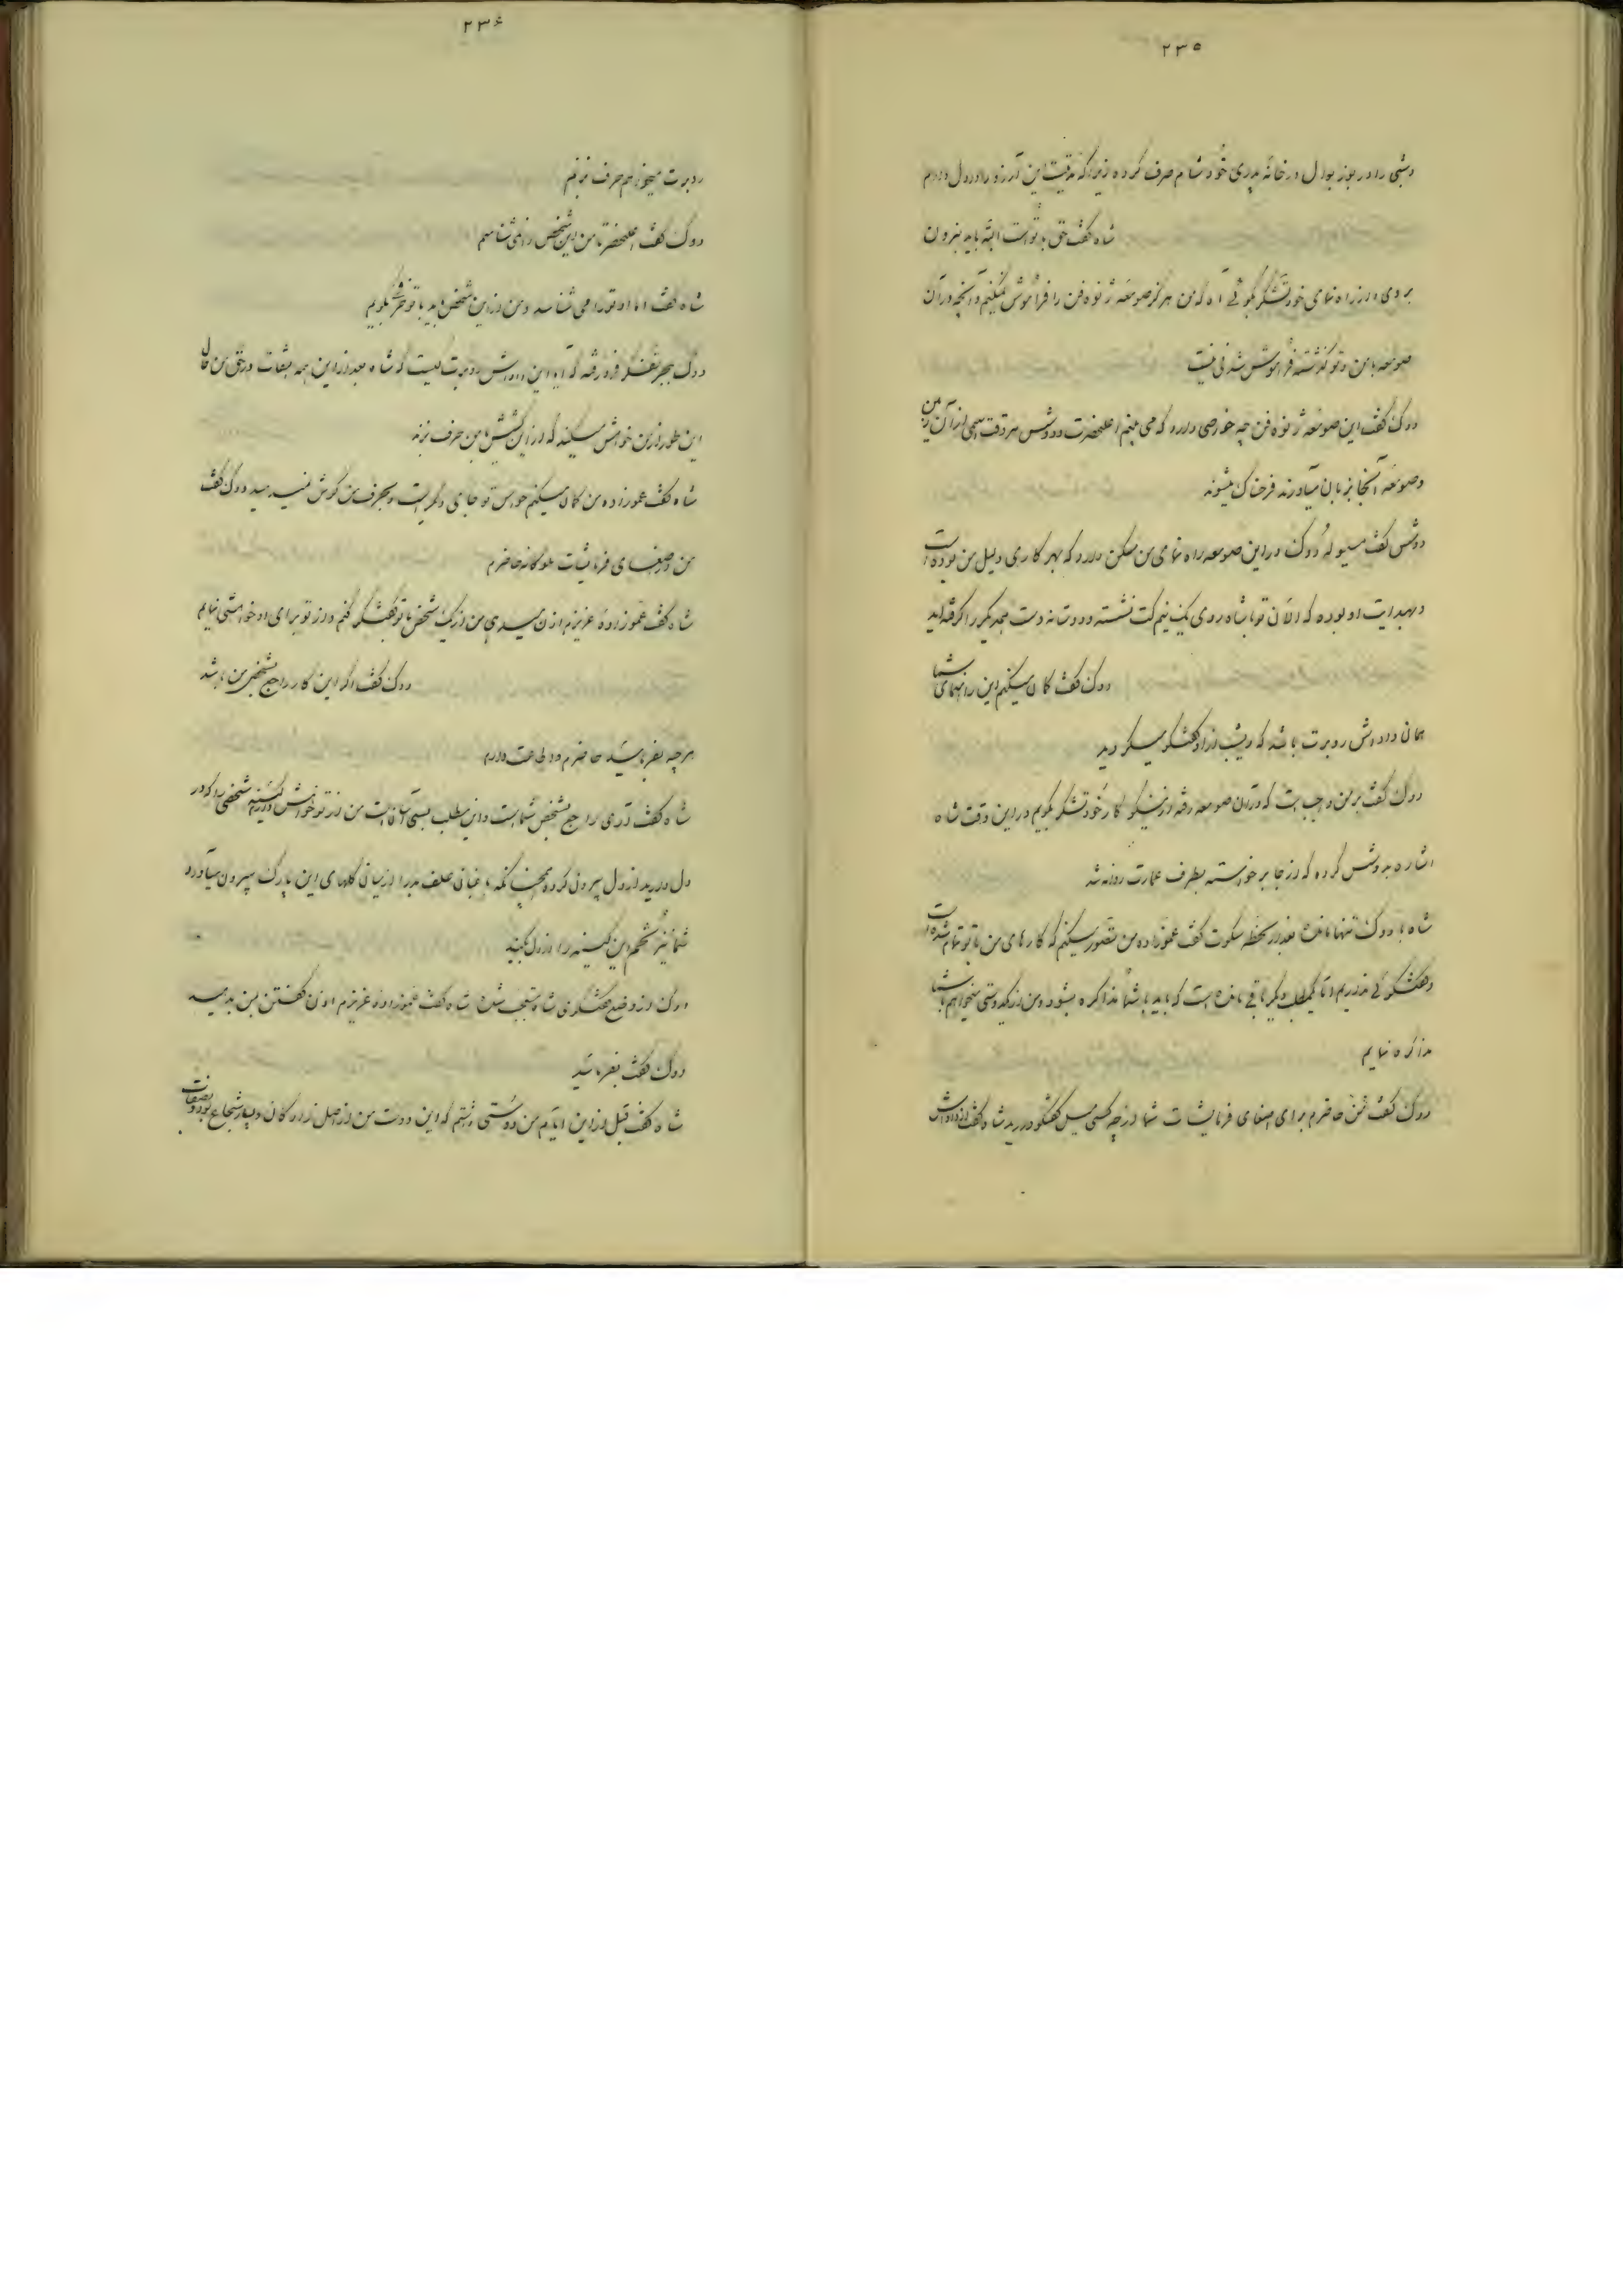 ۲۳۵
و شبی را در بوژ بودل در خانه پدری خود شام صرف کرده زیرا که مدتیست این آرزو را در دل دارم
شاه گفت حق با تو است البته باید بنرون
بروی و از راه نمای خود تشکر بگوئی آه که من هرگز صومعه ژنوه فن را فراموش نمیکنم و آنچه در آن
صومعه با من و تو گذشته فراموش شدنی نیست
دوک گفت این صومعه ژنوه فن چه خواصی دارد که می بینم اعلیحضرت و دوشس هر وقت اسمی از آن
و صومعه آنجا بزبان میآورند فرحناک میشوند
دوشس گفت مسیو له دوک در این صومعه راه نمای من مسکن دارد که بهر کاری دلیل من بوده است
و بهدایت او بوده که الآن تو با شاه روی یک نیم کت نشسته و دوستانه دست همدیگر را گرفته اید
دوک گفت گمان میکنم این راهنمای شما
همان داداش روبرت باشد که دیشب از او گفتگو میکردید
دوک گفت بر من واجب است که در آن صومعه رفته از نیکو کار خود تشکر بگویم در این وقت شاه
اشاره بدوشس کرده که از جا برخواسته بطرف عمارت روانه شد
شاه با دوک تنها مانده بعد از لحظه سکوت گفت عموزاده من تصور میکنم که کارهای من با تو تمام شده است
و گفتگوئی نداریم و تا یکمطلب دیگر باقی مانده است که باید با شما مذاکره بشود و من از یکدوستی میخواهم با شما
مذاکره نمایم
دوک گفت من حاضرم برای اصغای فرمایشات شما از چه کسی میل گفتگو دارید شاه گفت از داداش
۲۳۶
روبرت میخواهم حرف بزنم
دوک گفت اعلیحضرتا من این شخص را نمی شناسم
شاه گفت اما او تو را می شناسد و من از این شخص باید با تو حرفی بگویم
دوک ببحر تفکر فرو رفته که آیا این داداش روبرت کیست که شاه بعد از این همه التفات در حق من حال
این طور از من خواهش میکند که در آن کشیش با من حرف بزند
شاه گفت عموزاده من گمان میکنم حواس تو جای دیگر است و بحرف من گوش نمیدهید دوک گفت
من در اصغای فرمایشات ملوکانه حاضرم
شاه گفت عموزاده عزیزم اذن میدهی من از یک شخص با تو گفتگو کنم و از تو برای او خواهشی نمایم
دوک گفت اگر این کار راجع بشخص من باشد
هرچه بفرمائید حاضرم و اطاعت دارم
شاه گفت قدری راجع بشخص شما است و این مطلب بسی آسان است من از تو خواهش دارم کینه شخصی را که در
دل دارید از دل بیرون کرده همچنان که باغبان علف بد را از میان گلهای این پارک بیرون میآورد
شما نیز تخم این کینه را از دل بکنید
دوک از وضع گفتگوی شاه متعجب شده شاه گفت عموزاده عزیزم اذن گفتن بمن بدهید
دوک گفت بفرمائید
شاه گفت قبل از این ایام من دوستی داشتم که این دوست من از اصل نژاد گان و بسیار شجاع بود و بصفات